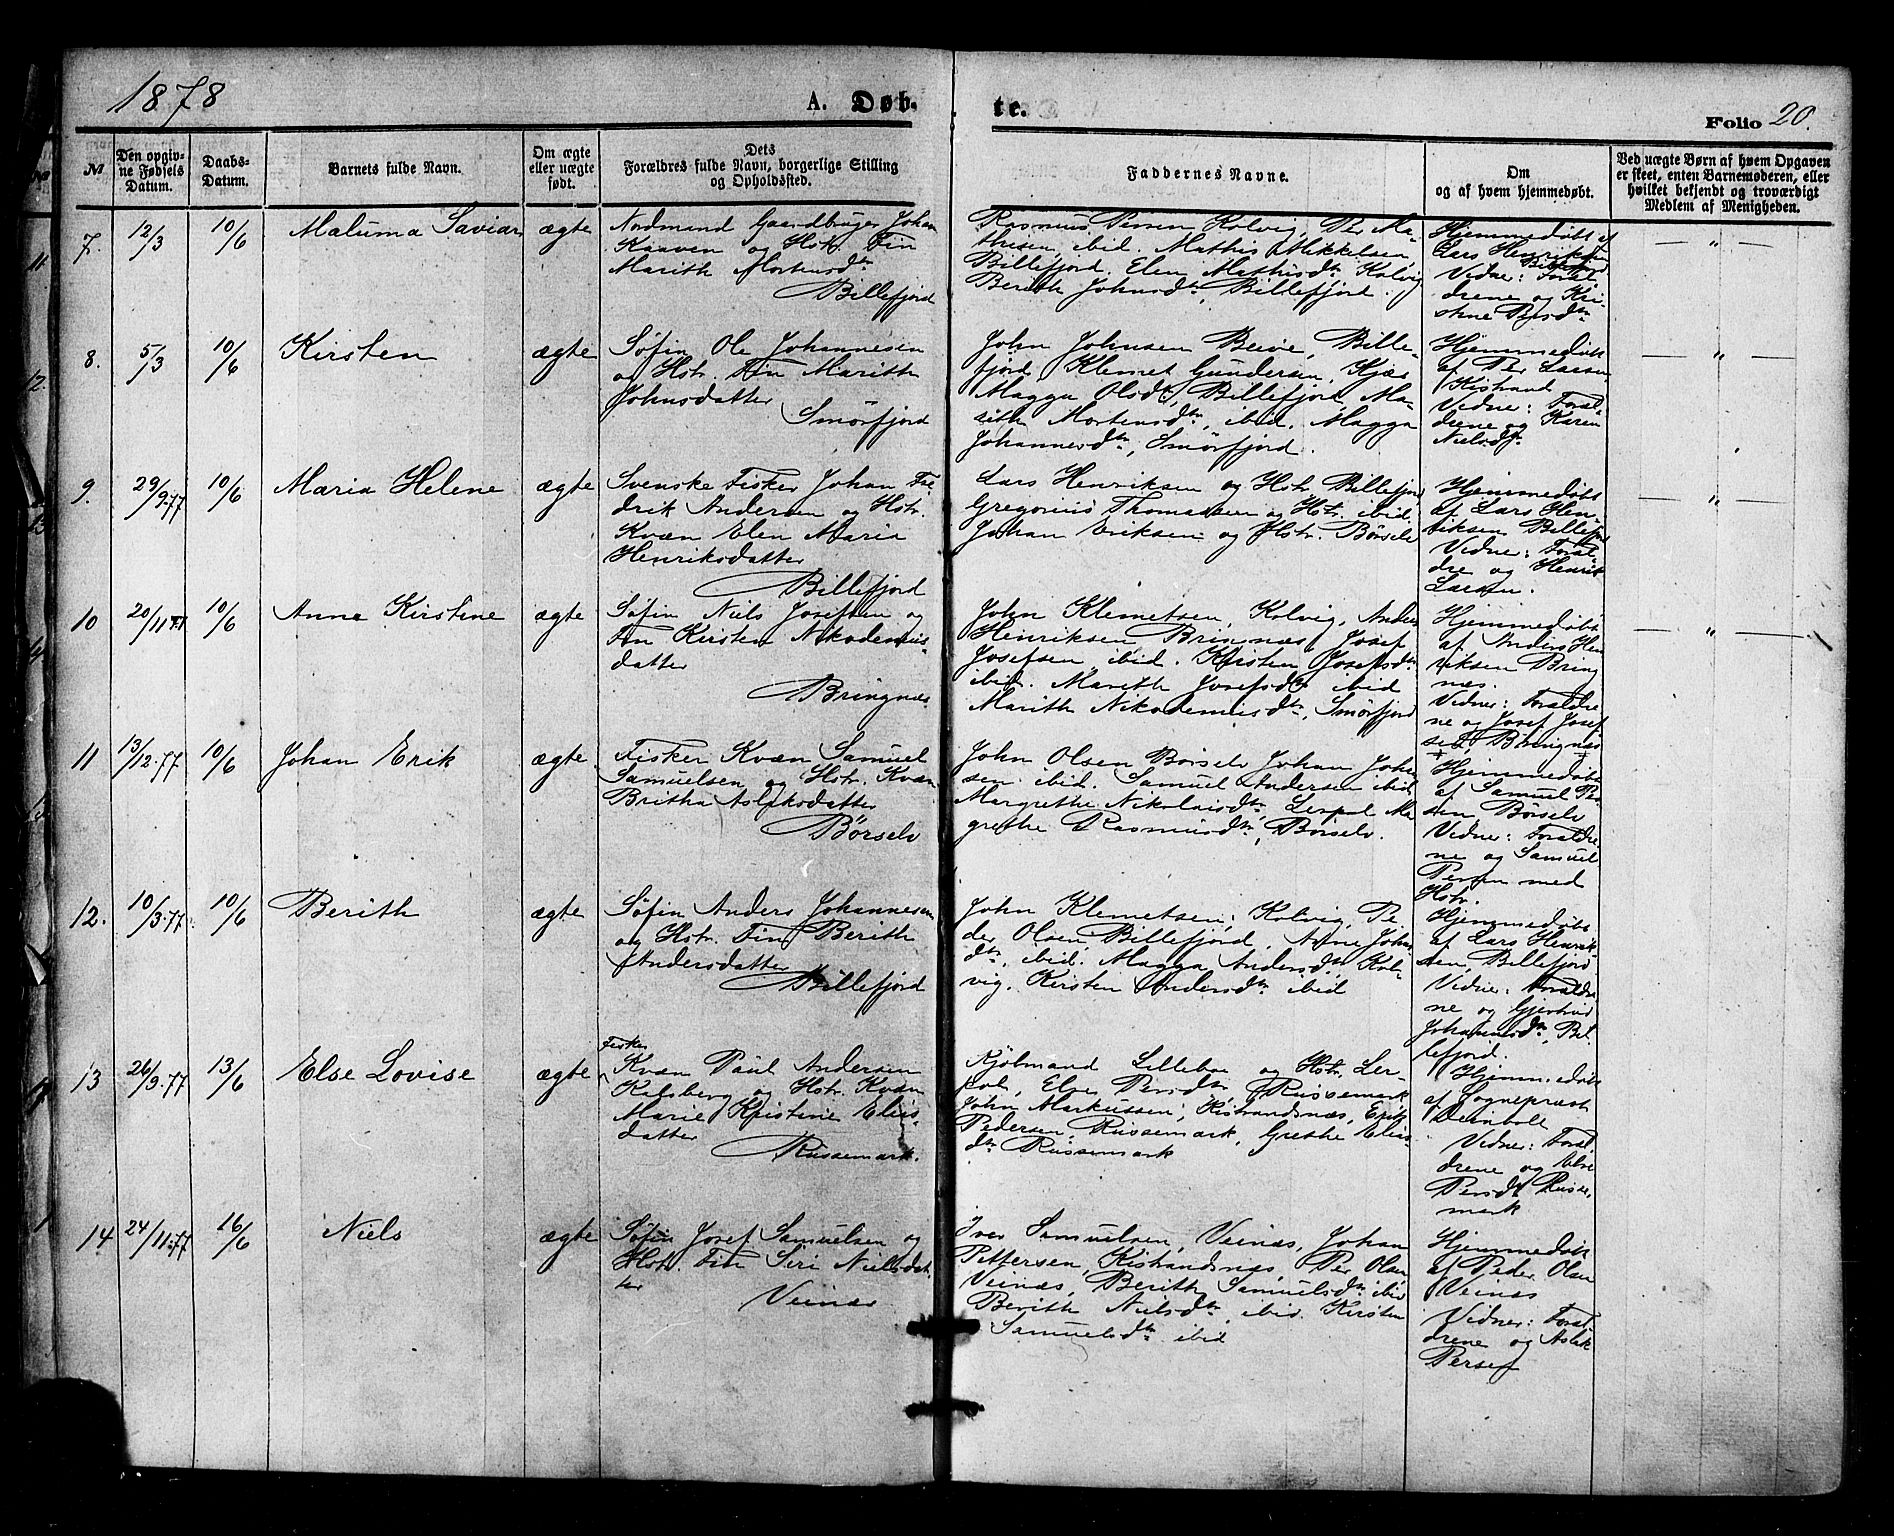 1878
A. Døb-
te.
Folio 20.
№
Den opgiv-
ne Fødsels
Datum.
Daabs-
Datum.
Barnets fulde Navn.
Om ægte
eller uægte
født.
Dets
Forældres fulde Navn, borgerlige Stilling
og Opholdssted.
Faddernes Navne.
Om
og af hvem hjemmedøbt.
Ved uægte Børn af hvem Opgaven
er skeet, enten Barnemoderen, eller
hvilket bekjendt og troværdigt
Medlem af Menigheden.
7.
12/3
10/6
Maluma Savian
ægte
Nordmand Gaardbruger Johan
Kaaven og Hstr. Fin
Marith Mortensdtr
Billefjord
Rasmus Persen Kolvig, Per Ma-
thisen ibid. Mathis Mikkelsen
Billefjord. Elen Mathisdtr Kolvig
Berith Johnsdtr, Billefjord.
Hjemmedøbt af
Lars Henriksen
Billefjord
Vidner: Foræl-
drene og Kri-
stine
— " —
8.
5/3
10/6
Kirsten
ægte
Søfin Ole Johannesen
og Hstr. Fin Marith
Johnsdatter
Smørfjord
John Johnsen Beive, Bille-
fjord Klemet Gundersen, Kjæs
Magga Olsdtr, Billefjord Ma-
rith Mortensdtr, ibid. Magga
Johannesdtr, Smørfjord.
Hjemmedøbt
af Per Larsen
Kistrand
Vidner: Foræl-
drene og Karen
Nielsdtr
— " —
9.
29/9.77
10/6
Maria Helene
ægte
Svenske Fisker Johan Fre-
drik Andersen og Hstr.
Kvæn Elen Maria
Henriksdatter
Billefjord
Lars Henriksen og Hstr. Billefjord
Gregorius Thomassen og Hstr. ibid.
Johan Eriksen og Hstr. Børselv
Hjemmedøbt
af Lars Hen-
riksen Billefjord
Vidner: Foræl-
dre og Henrik
Larsen.
— " —
10
20/11 77
10/6
Anne Kirstine
ægte
Søfin Niels Josefsen og
Fin Kirsten Nikodemus-
datter
Bringnæs
John Klemetsen, Kolvig, Anders
Henriksen Bringnæs, Josef
Josefsen ibid. Kirsten Josefsdtr
ibid. Marith Josefsdtr ibid
Marith Nikodemusdtr, Smørfjord
Hjemmedøbt
af Anders Hen-
riksen Bring
næs.
Vidner: Forældre-
ne og Josef Josef-
sen, Bringnæs
— " —
11
13/12.77
10/6
Johan Erik
ægte
Fisker Kvæn Samuel
Samuelsen og Hstr. Kvæn
Britha Aslaksdatter
Børselv
John Olsen Børselv Johan John-
sen ibid. Samuel Andersen ibid
Margrethe Nikolaisdtr, Lerpol Ma
grethe Rasmusdtr, Børselv.
Hjemmedøbt
af Samuel Per-
sen Børselv
Vidner: Forældre-
ne og Samuel
Persen med
Hstr.
12.
10/3.77
10/6
Berith
ægte
Søfin Anders Johannesen
og Hstr. Fin Berith
Andersdatter
Billefjord
John Klemetsen, Kolvig, Pe-
der Olsen Billefjord. Anne Johns
dtr, ibid. Magga Andersdtr, Kol-
vig. Kirsten Andersdtr ibid
Hjemmedøbt
af Lars Henrik-
sen, Billefjord
Vidner: Forældre
ne og Gjertrud
Johannesdtr, Bil-
lefjord.
13
26/9.77
13/6
Else Lovise
ægte
Fisker
Kvæn Paul Andersen
Karlsberg og Hstr. Kvæn
Marie Kristine Elias-
datter
Russemark.
Kjøbmand Lillebo og Hstr. Ler-
pol, Else Persdtr, Russemark
John Markussen, Kistrandsnæs, Erik
Pedersen, Russemark, Grethe Elias
dtr Russemark
Hjemmedøbt
af Sognepræst
Deinboll
Vidner: Foræl-
drene og Else
Persdtr Russe-
mark
14
24/11.77
16/6
Niels
ægte
Søfin Josef Samuelsen og
Hstr. Fin Siri Nielsdat-
ter
Veinæs
Iver Samuelsen, Veinæs, Johan
Pettersen, Kistrandsnæs, Per Olsen
Veinæs, Berith Samuelsdtr ibid
Berith Nielsdtr, ibid. Kirsten
Samuelsdtr ibid
Hjemmedøbt
af Peder Olsen
Veinæs
Vidner: Foræl-
drene og Aslak
Persen